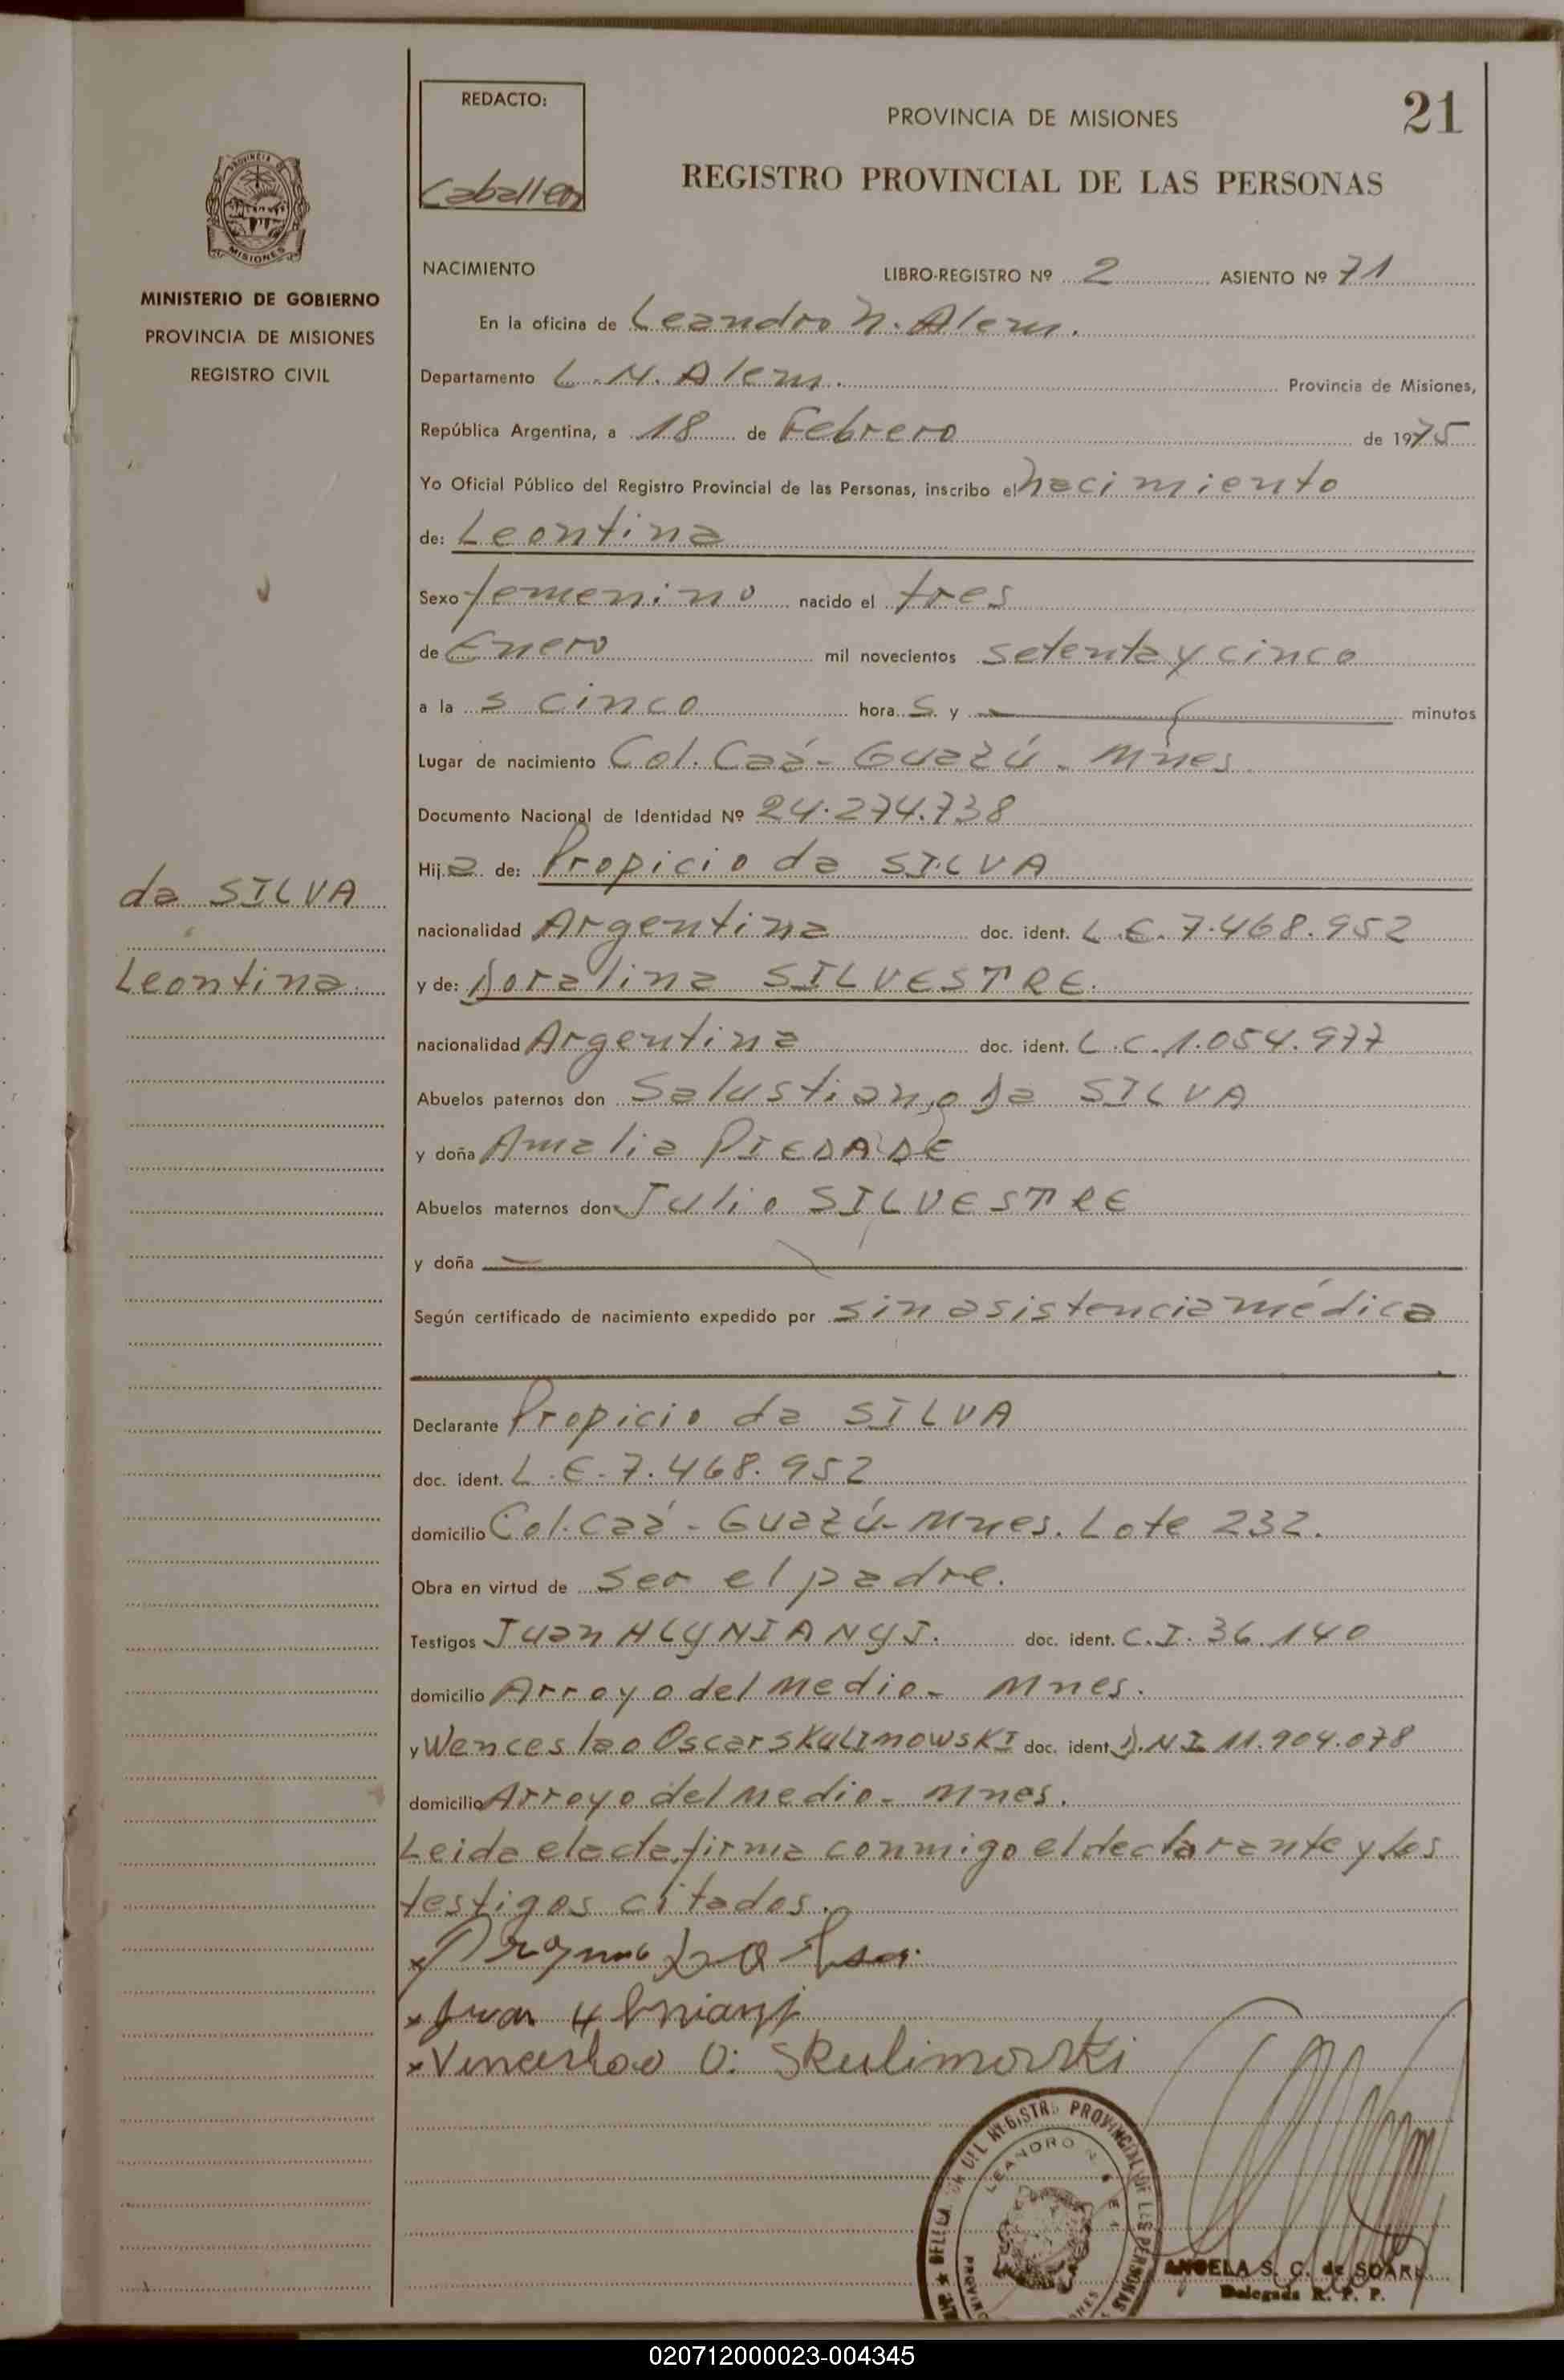 REDACTO:
Caballero
PROVINCIA DE MISIONES
21
REGISTRO PROVINCIAL DE LAS PERSONAS
MISIONES
MINISTERIO DE GOBIERNO
PROVINCIA DE MISIONES
REGISTRO CIVIL
NACIMIENTO LIBRO-REGISTRO Nº 2 ASIENTO Nº 71
En la oficina de Leandro N. Alem.
Departamento L. N. Alem. Provincia de Misiones,
República Argentina, a 18 de Febrero de 1975
Yo Oficial Público del Registro Provincial de las Personas, inscribo el nacimiento
de: Leontina
Sexo femenino nacido el tres
de Enero mil novecientos setenta y cinco
a la s cinco hora s y minutos
Lugar de nacimiento Col. Caá-Guazú - Mnes.
Documento Nacional de Identidad Nº 24.274.738
Hija de: Propicio da SILVA
da SILVA
nacionalidad Argentina doc. ident. L.E. 7.468.952
Leontina.
y de: Doralina SILVESTRE.
nacionalidad Argentina doc. ident. L.C. 1.054.977
Abuelos paternos don Salustiano Da SILVA
y doña Amalia PIEDADE
Abuelos maternos don Julio SILVESTRE
y doña
Según certificado de nacimiento expedido por sin asistencia médica
Declarante Propicio da SILVA
doc. ident. L.E. 7.468.952
domicilio Col. Caá-Guazú-Mnes. Lote 232.
Obra en virtud de ser el padre.
Testigos Juan HLYNIANYJ. doc. ident. C.I. 36.140
domicilio Arroyo del Medio- Mnes.
y Wenceslao Oscar SKULIMOWSKI doc. ident D.N.I 11.904.078
domicilio Arroyo del Medio- Mnes.
Leida el acta, firma conmigo el declarante y los
testigos citados.
x Juan
x Venceslao O. Skulimowski
DEL REGISTRO PROVINCIAL DE LAS PERSONAS
LEANDRO N.
ANGELA S. C. de SOARE
Delegada R. P. P.
020712000023-004345